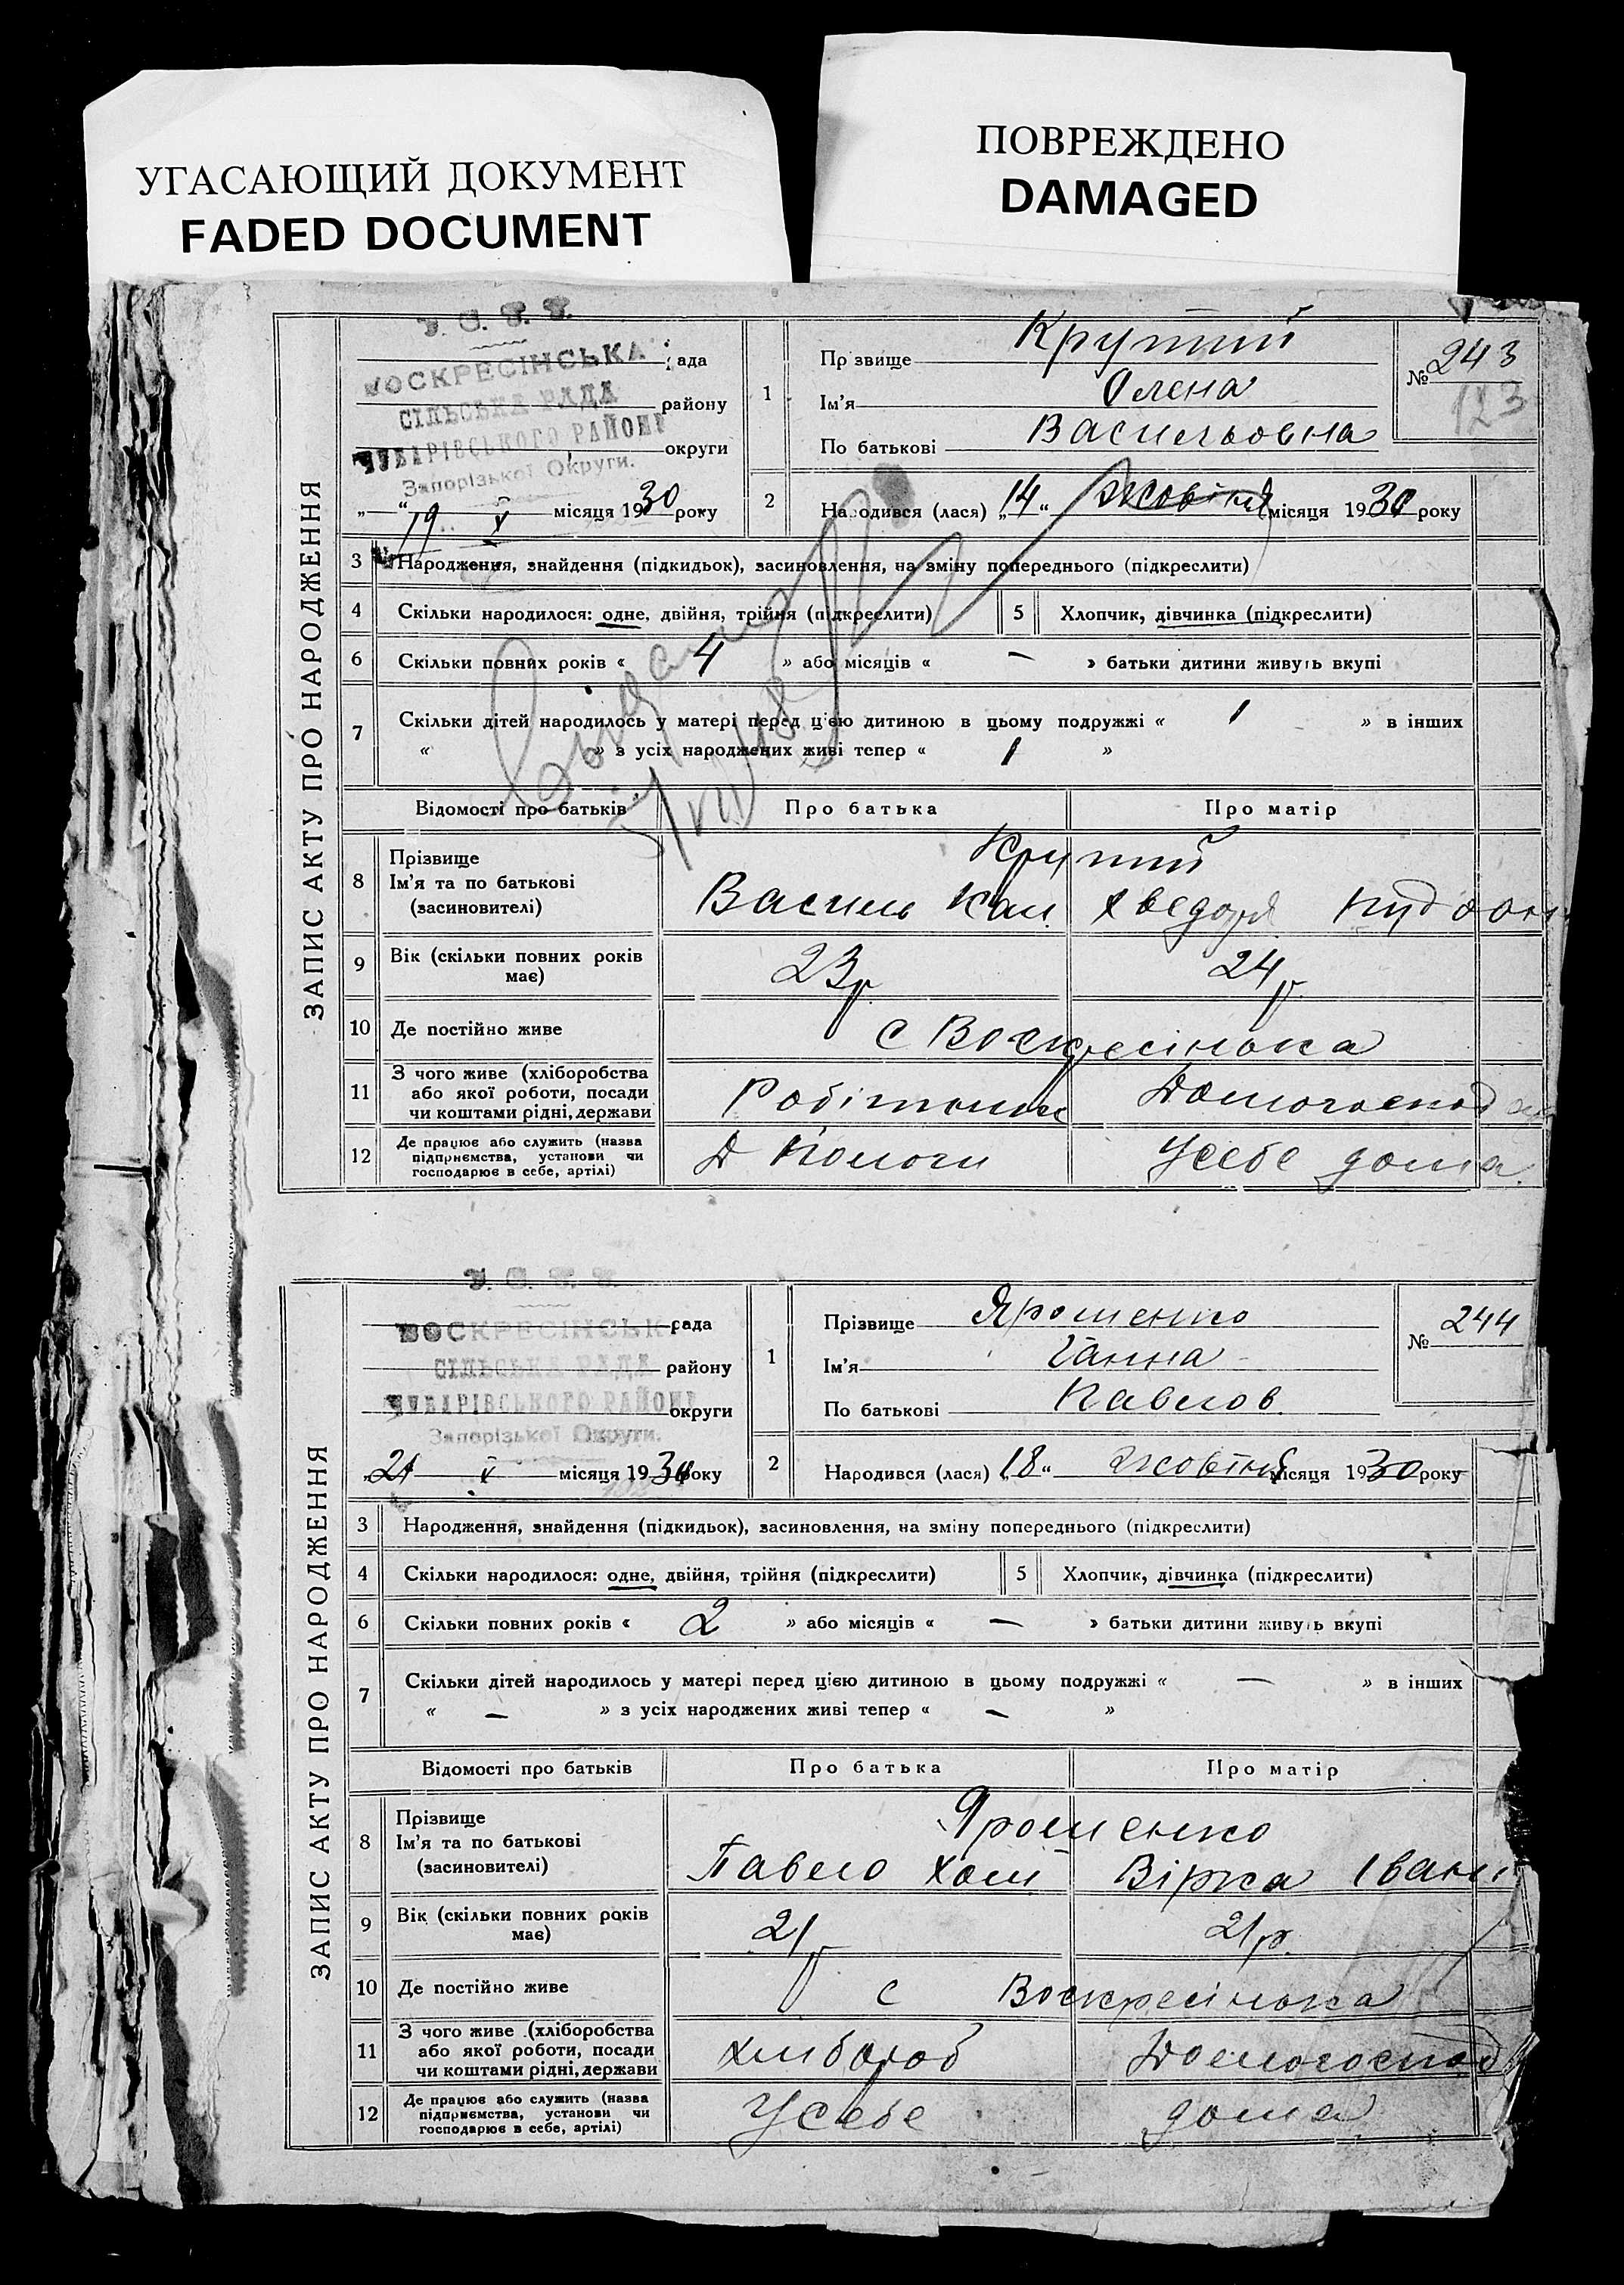 УГАСАЮЩИЙ ДОКУМЕНТ
FADED DOCUMENT
ПОВРЕЖДЕНО
DAMAGED
ЗАПИС АКТУ ПРО НАРОДЖЕННЯ
У. С. Р. Р.
ВОСКРЕСІНСЬКА рада
СІЛЬСЬКА РАДА району
ЧУБАРІВСЬКОГО РАЙОНУ округи
Запорізької Округи.
„ “ 19 X місяця 1930 року
1 Прізвище Крутий
Ім'я Олена
По батькові Васильовна
№ 243
123
2 Народився (лася) „14“ жовтня місяця 1930 року
3 Народження, знайдення (підкидьок), засиновлення, на зміну попереднього (підкреслити)
4 Скільки народилося: одне, двійня, трійня (підкреслити) 5 Хлопчик, дівчинка (підкреслити)
6 Скільки повних років « 4 » або місяців « — » батьки дитини живуть вкупі
7 Скільки дітей народилось у матері перед цією дитиною в цьому подружжі « 1 » в інших
« » з усіх народжених живі тепер « 1 »
Відомості про батьків Про батька Про матір
8 Прізвище Крутий
Ім'я та по батькові
(засиновителі) Василь
9 Вік (скільки повних років має) 23 р. 24 р.
10 Де постійно живе с Воскресінька
11 З чого живе (хліборобства
або якої роботи, посади
чи коштами рідні, держави Робітник Домогоспод
12 Де працює або служить (назва
підприємства, установи чи
господарює в себе, артілі) Пологи Усебе дома
ЗАПИС АКТУ ПРО НАРОДЖЕННЯ
У. С. Р. Р.
ВОСКРЕСІНСЬК рада
СІЛЬСЬКА РАДА району
ЧУБАРІВСЬКОГО РАЙОНУ округи
Запорізької Округи.
„21 X місяця 1930 року
1 Прізвище Ярошенко
Ім'я Ганна
По батькові Павлов.
№ 244
2 Народився (лася) „18“ жовтня місяця 1930 року
3 Народження, знайдення (підкидьок), засиновлення, на зміну попереднього (підкреслити)
4 Скільки народилося: одне, двійня, трійня (підкреслити) 5 Хлопчик, дівчинка (підкреслити)
6 Скільки повних років « 2 » або місяців « — » батьки дитини живуть вкупі
7 Скільки дітей народилось у матері перед цією дитиною в цьому подружжі « — » в інших
« — » з усіх народжених живі тепер « — »
Відомості про батьків Про батька Про матір
8 Прізвище Ярошенко
Ім'я та по батькові
(засиновителі) Павло Хом Вірка Іван
9 Вік (скільки повних років має) 21 р 21 р.
10 Де постійно живе с Воскресінька
11 З чого живе (хліборобства
або якої роботи, посади
чи коштами рідні, держави хлибороб Домогоспод
12 Де працює або служить (назва
підприємства, установи чи
господарює в себе, артілі) Усебе дома